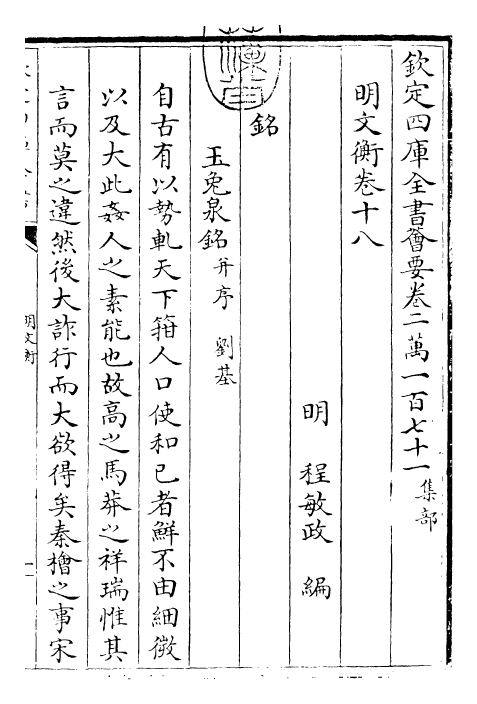 欽定四庫全書薈要卷二萬一百七十一 集部
明文衡卷十八
明 程敏政 編
銘
玉兔泉銘 并序 劉基
自古有以勢軋天下箝人口使和已者鮮不由細微
以及大此姦人之素能也故高之馬莽之祥瑞惟其
言而莫之違然後大詐行而大欲得矣秦檜之事宋
明文衡